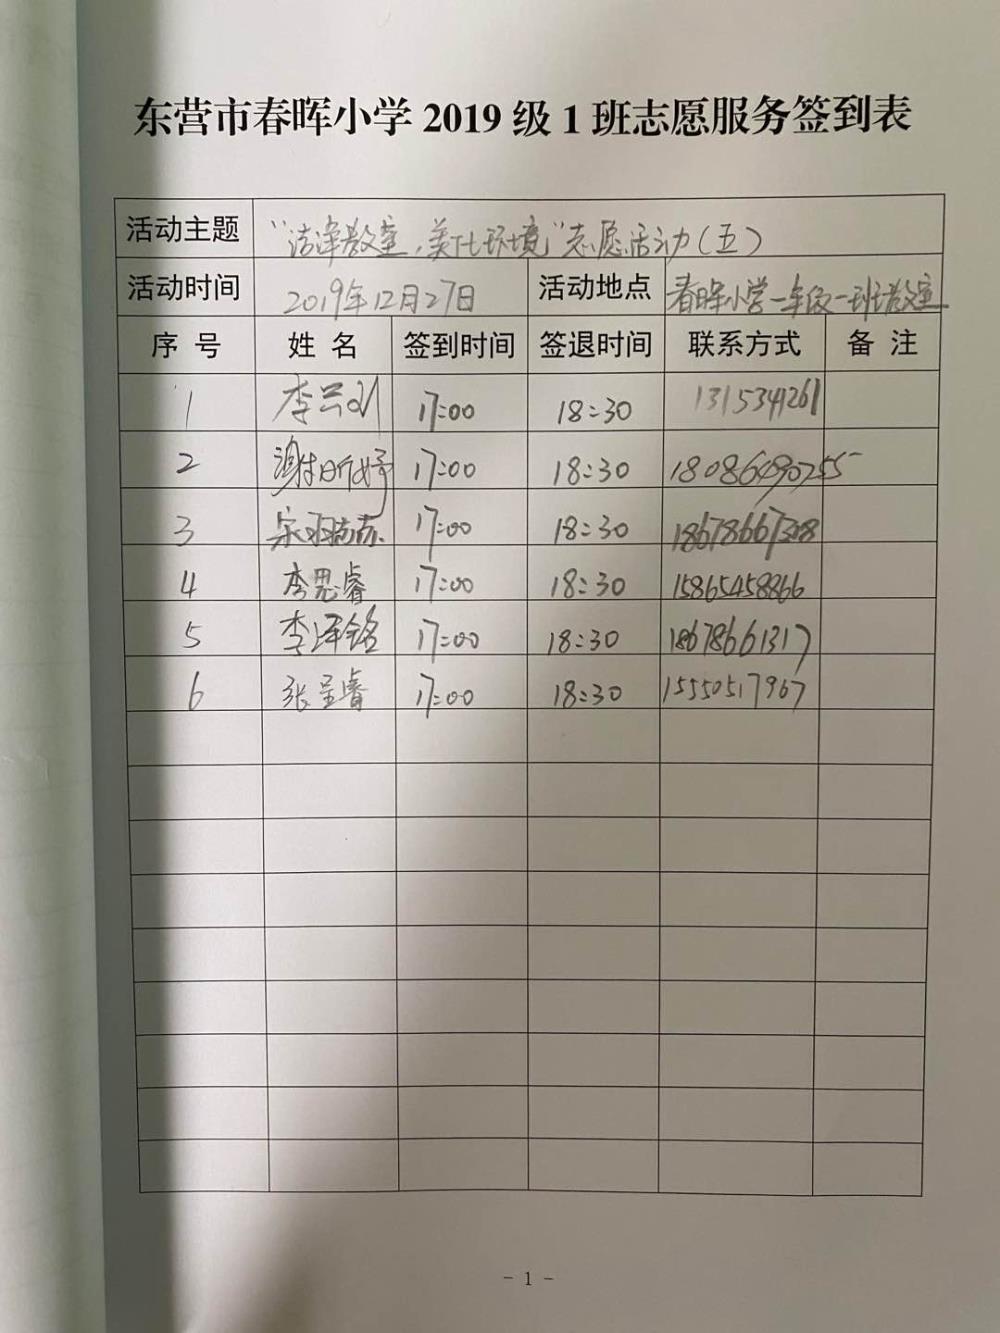 东营市春晖小学 2019 级 1 班志愿服务签到表
活动主题 “洁净教室，美化环境”志愿活动（五）
活动时间 2019年12月27日 活动地点 春晖小学一年级一班教室
序 号 姓 名 签到时间 签退时间 联系方式 备 注
1 李 17:00 18:30 1315341261
2 谢昕妤 17:00 18:30 18086490755
3 17:00 18:30
4 李思睿 17:00 18:30 15865458866
5 李泽铭 17:00 18:30 18678661317
6 张呈睿 17:00 18:30 15550517967
- 1 -